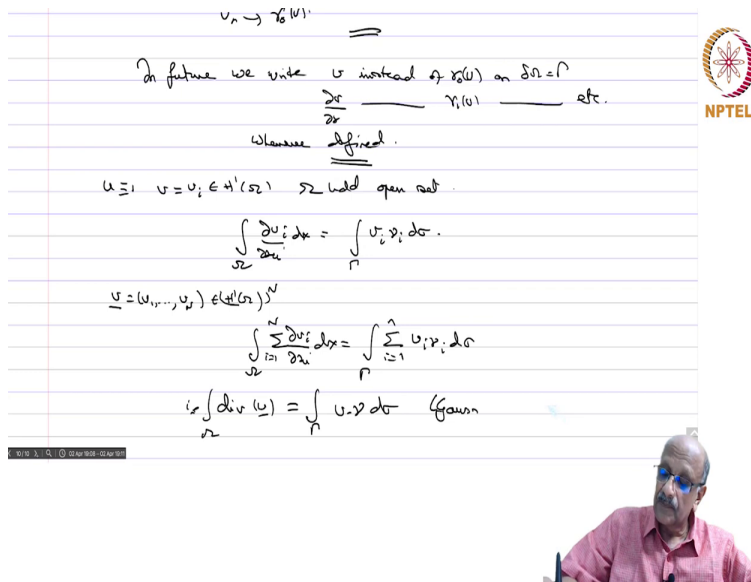 vₙ → γ₀(v).
In future we write v instead of γ₀(v) on ∂Ω = Γ
∂v/∂ν ——— γ₁(v) ——— etc.
whenever defined.
u ≡ 1 v = vᵢ ∈ H¹(Ω) Ω bdd open set.
∫_Ω ∂vᵢ/∂xᵢ dx = ∫_Γ vᵢ νᵢ dσ.
v = (v₁, ..., v_N) ∈ (H¹(Ω))^N
∫_Ω Σ_{i=1}^N ∂vᵢ/∂xᵢ dx = ∫_Γ Σ_{i=1}^N vᵢ νᵢ dσ
∫_Ω div (v) = ∫_Γ v·ν dσ (Gauss
NPTEL
10/10 02 Apr 19:08 - 02 Apr 19:11